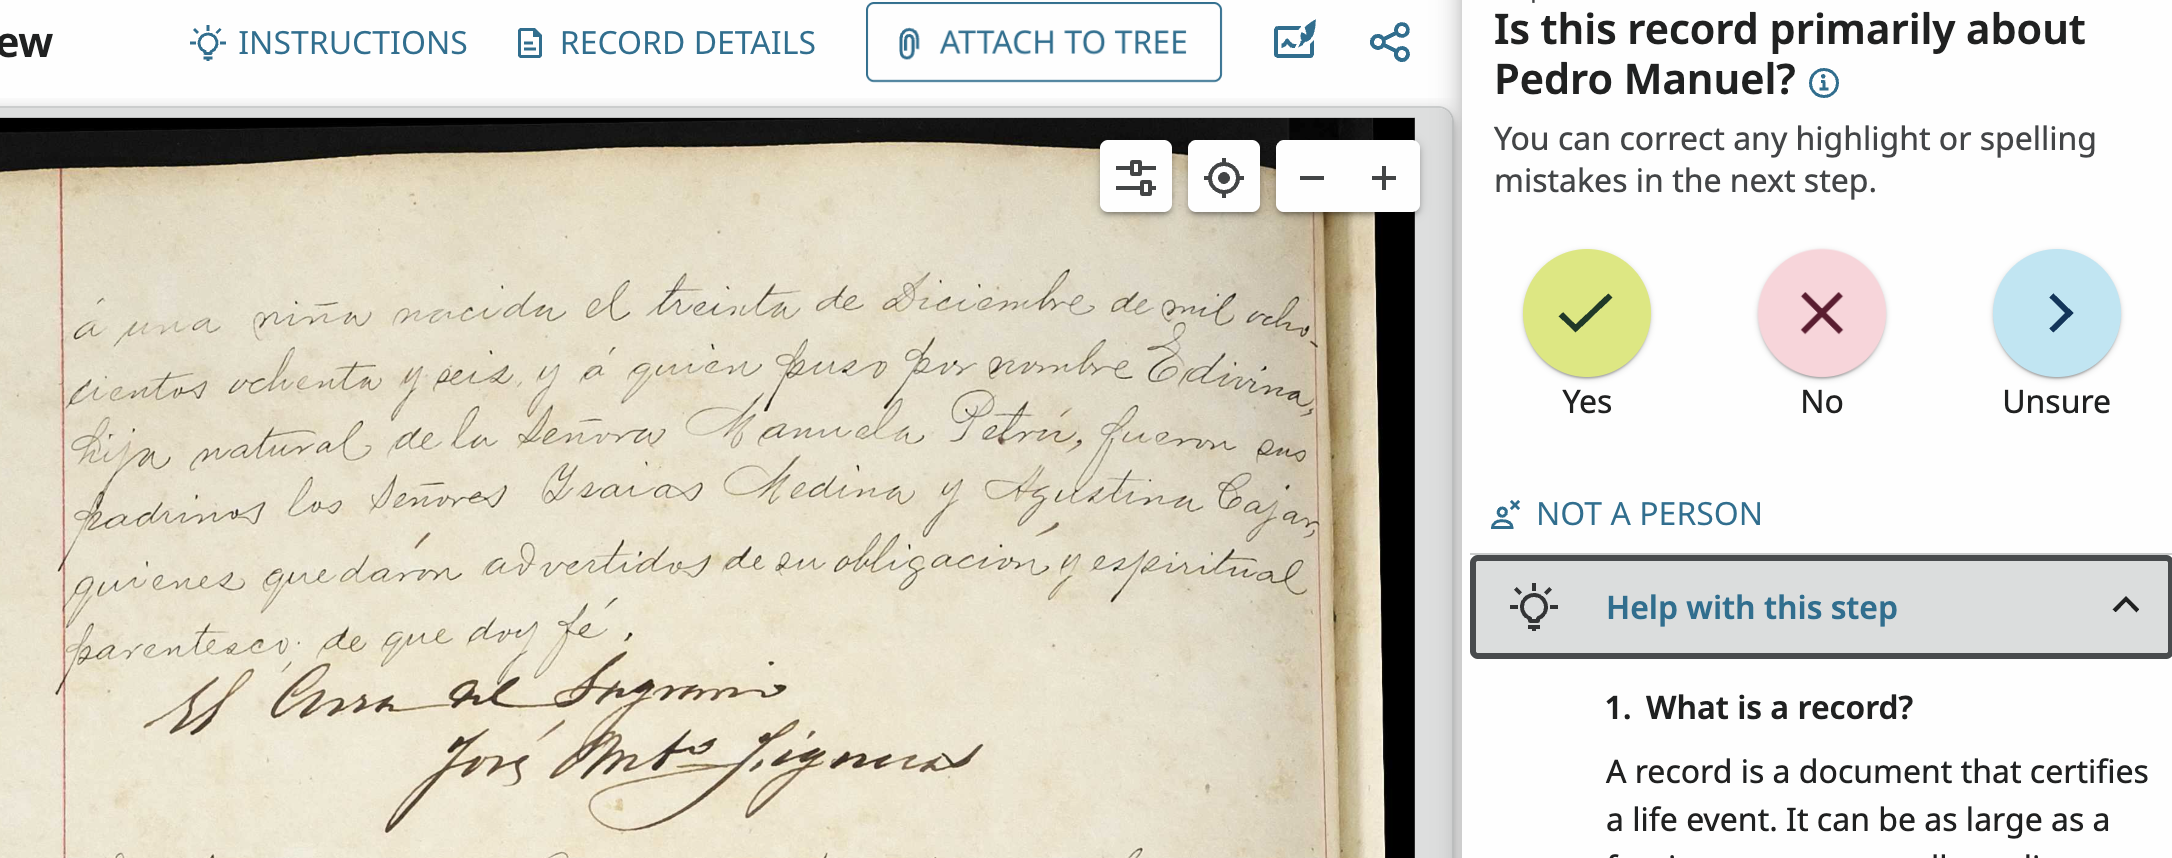 ew
INSTRUCTIONS
RECORD DETAILS
ATTACH TO TREE
á una niña nacida el treinta de Diciembre de mil ocho-
cientos ochenta y seis, y á quien puso por nombre Edivina,
hija natural de la Señora Manuela Petrú, fueron sus
padrinos los Señores Ysaias Medina y Agustina Cajar,
quienes quedarón advertidos de su obligación y espiritual
parentesco; de que doy fé.
El Cura del Sagrario
José Anto
Is this record primarily about
Pedro Manuel?
You can correct any highlight or spelling
mistakes in the next step.
Yes
No
Unsure
NOT A PERSON
Help with this step
1. What is a record?
A record is a document that certifies
a life event. It can be as large as a